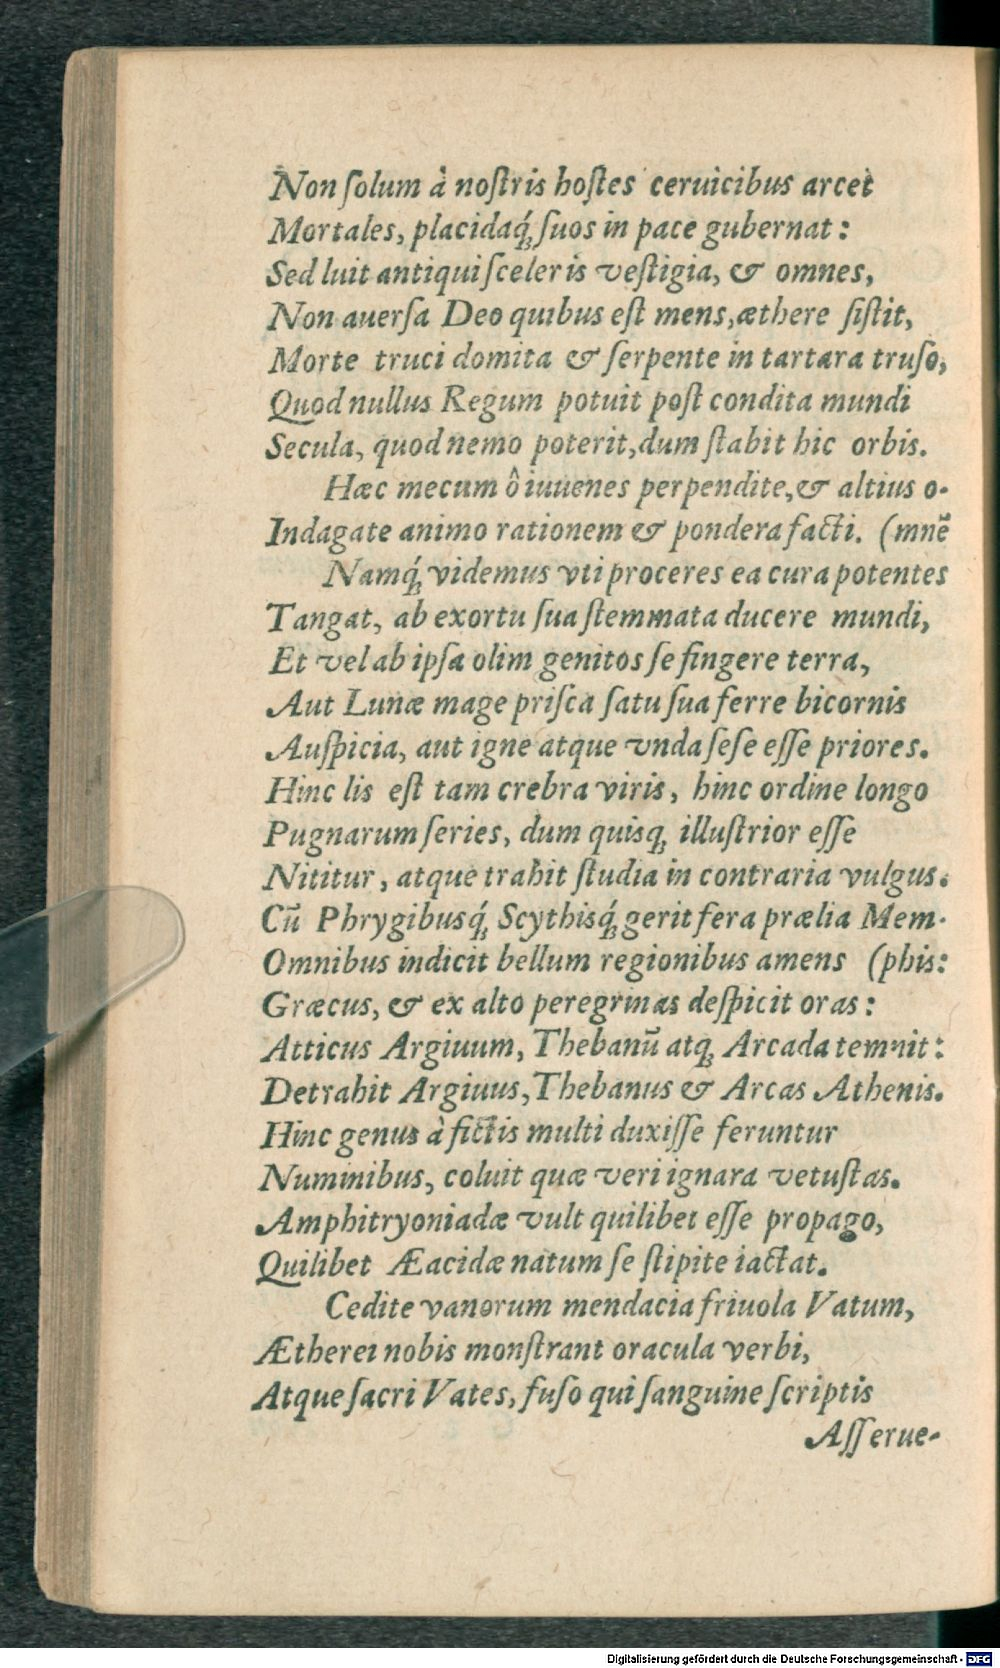 Non ſolum à noſtris hoſtes ceruicibus arcet
Mortales, placidaq́; ſuos in pace gubernat:
Sed luit antiqui ſceleris veſtigia, & omnes,
Non auerſa Deo quibus eſt mens, æthere ſiſtit,
Morte truci domita & ſerpente in tartara truſo,
Quod nullus Regum potuit poſt condita mundi
Secula, quod nemo poterit, dum ſtabit hic orbis.
Hæc mecum ô iuuenes perpendite, & altius o-
Indagate animo rationem & pondera facti. (mnē
Namq́; videmus vti proceres ea cura potentes
Tangat, ab exortu ſua ſtemmata ducere mundi,
Et vel ab ipſa olim genitos ſe fingere terra,
Aut Lunæ mage priſca ſatu ſua ferre bicornis
Auſpicia, aut igne atque vnda ſeſe eſſe priores.
Hinc lis eſt tam crebra viris, hinc ordine longo
Pugnarum ſeries, dum quisq; illuſtrior eſſe
Nititur, atque trahit ſtudia in contraria vulgus.
Cū Phrygibusq́; Scythisq́; gerit fera prælia Mem-
Omnibus indicit bellum regionibus amens (phis:
Græcus, & ex alto peregrinas deſpicit oras:
Atticus Argiuum, Thebanū atq; Arcada temnit:
Detrahit Argiuus, Thebanus & Arcas Athenis.
Hinc genus à fictis multi duxiſſe feruntur
Numinibus, coluit quæ veri ignara vetuſtas.
Amphitryoniadæ vult quilibet eſſe propago,
Quilibet Æacidæ natum ſe ſtipite iactat.
Cedite vanorum mendacia friuola Vatum,
Ætherei nobis monſtrant oracula verbi,
Atque ſacri Vates, fuſo qui ſanguine ſcriptis
Aſſerue-
Digitalisierung gefördert durch die Deutsche Forschungsgemeinschaft - DFG